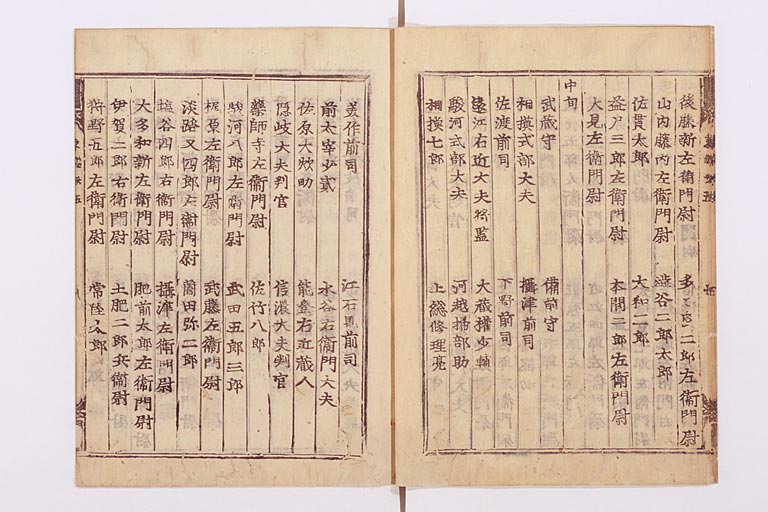 後藤新左衛門尉 多□□二郎左衛門尉
山内藤内左衛門尉 澁谷二郎太郎
佐貫太郎 大和二郎
益戸三郎左衛門尉 本間二郎左衛門尉
大見左衛門尉
中旬
武蔵守 備前守
相摸式部大夫 攝津前司
佐渡前司 下野前司
遠江右近大夫将監 大蔵權少輔
駿河式部大夫 河越掃部助
相摸七郎 上総修理亮
美作前司 江石見前司
前太宰少貳 水谷右衛門大夫
佐原大炊助 能登右近蔵人
隠岐大夫判官 信濃大夫判官
藥師寺左衛門尉 佐竹八郎
駿河八郎左衛門尉 武田五郎三郎
梶原左衛門尉 武藤左衛門尉
淡路又四郎左衛門尉 薗田弥二郎
塩谷四郎右衛門尉 攝津左衛門尉
大多和新左衛門尉 肥前太郎左衛門尉
伊賀二郎右衛門尉 土肥二郎兵衛尉
狩野五郎左衛門尉 常陸二郎